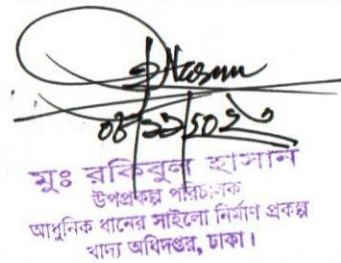 মুঃ রকিবুল হাসান
উপপ্রকল্প পরিচালক
আধুনিক ধানের সাইলো নির্মাণ প্রকল্প
খাদ্য অধিদপ্তর, ঢাকা।